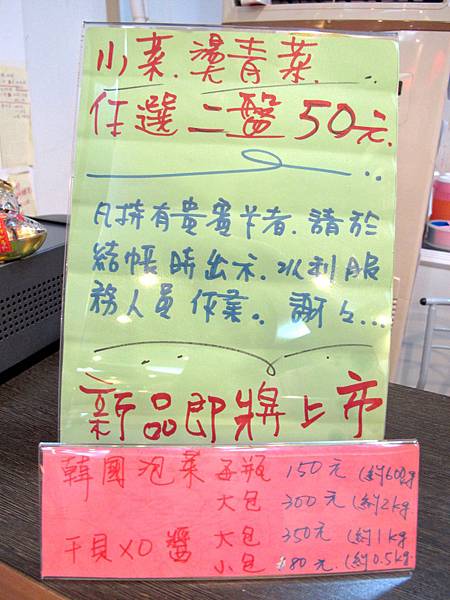 小菜.燙青菜
任選二盤50元.
凡持有貴賓卡者.請於
結帳時出示.以利服
務人員作業。謝々...
新品即將上市
韓國泡菜 玉瓶 150元 (約600g
大包 300元 (約2kg
干貝XO醬 大包 350元 (約1kg
小包 180元 (約0.5kg